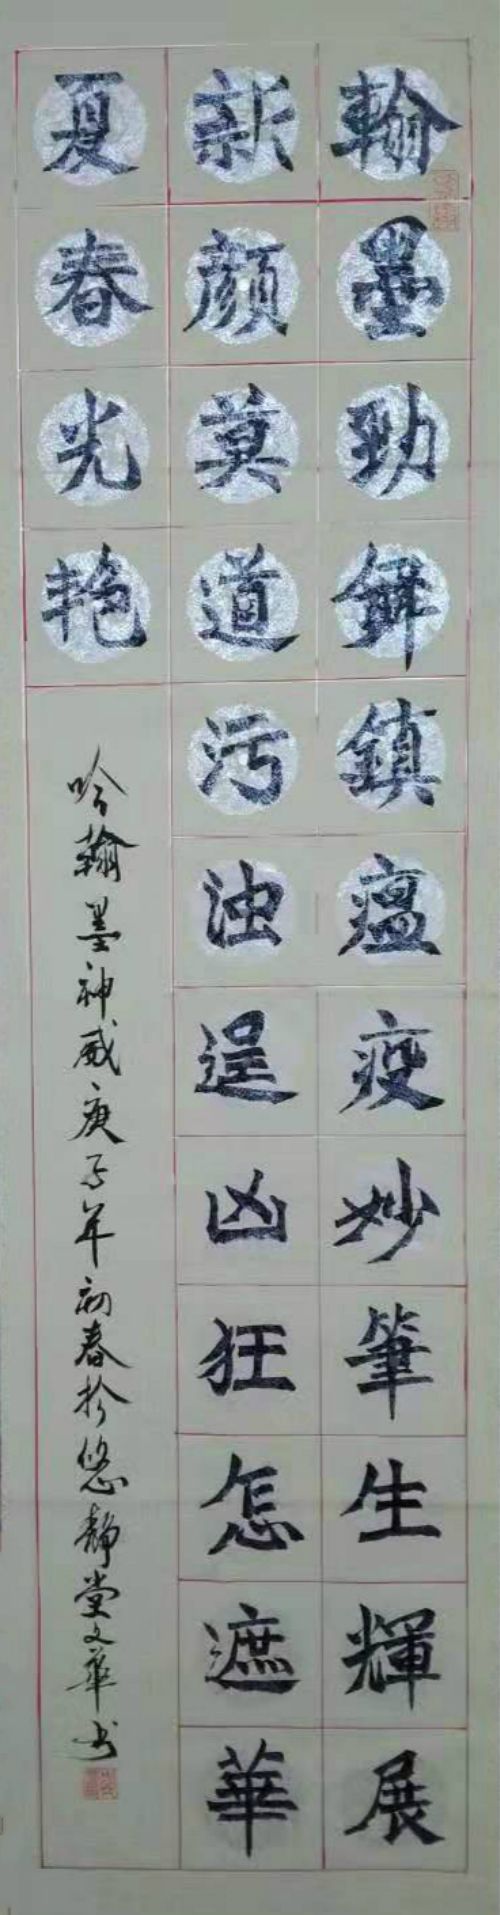 翰墨劲鋅鎮瘟疫妙筆生輝展
新颜莫道污浊逞凶狂怎遮華
夏春光艳
吟翰墨神威庚子年初春於悠静堂文華书